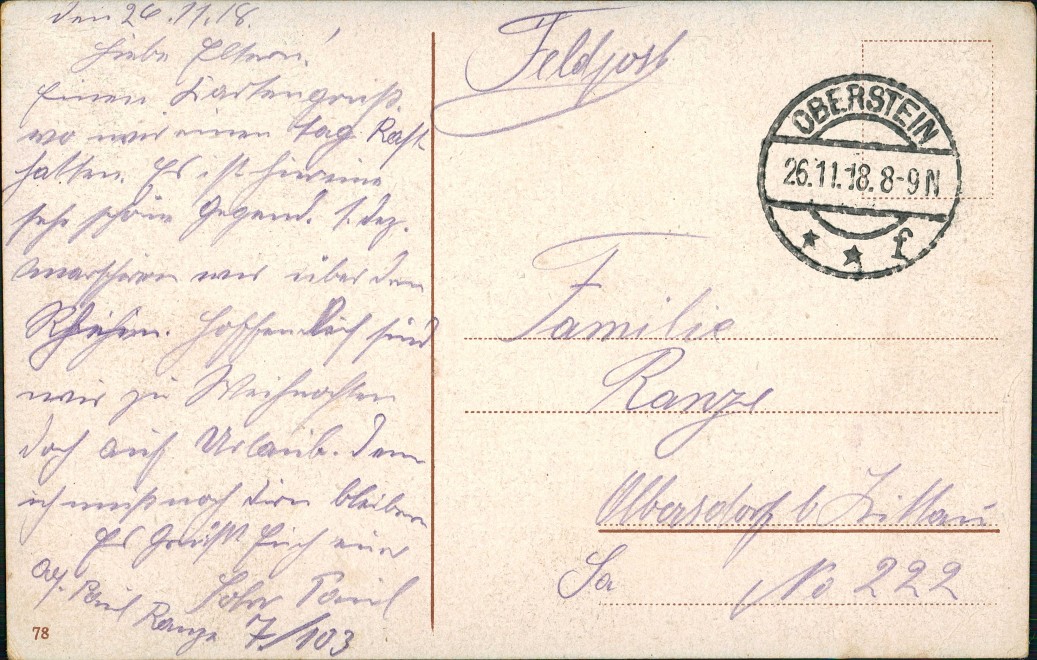 den 26.11.18.
Liebe Eltern!
Einen Kartengruß.
wo wir einen Tag Rast
halten. Es ist hier eine
sehr schöne Gegend. 1. Dez.
marschieren wir über den
Rhein. Hoffendlich sind
wir zu Weihnachten
doch auf Urlaub. Denn
ich muß noch bleiben
Es Grüßt Euch euer
Sohn Paul
Paul
Ranze 7/103
78
Feldpost
OBERSTEIN
26.11.18.8-9N
f
Familie
Ranze
Olbersdorf b Zittau
Sa No 222